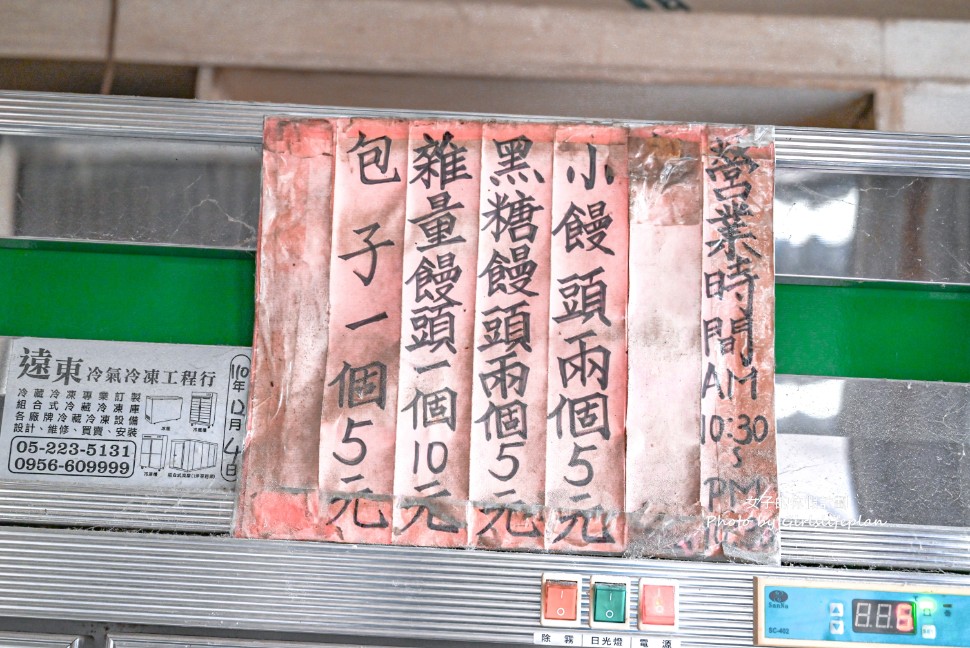 營業時間AM
10:30
~
PM
小饅頭兩個5元
黑糖饅頭兩個5元
雜量饅頭一個10元
包子一個5元
遠東冷氣冷凍工程行
冷藏冷凍專業訂製
組合式冷藏冷凍庫
各廠牌冷藏冷凍設備
設計、維修、買賣、安裝
05-223-5131
0956-609999
110年12月4日
除霧
日光燈
電源
SanHe
SC-402
Photo by